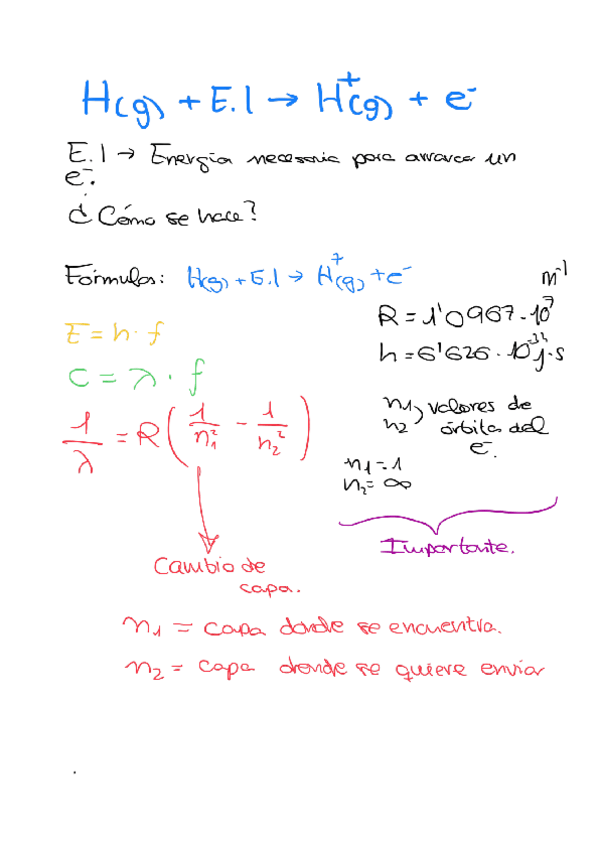 H(g) + E.I → H⁺(g) + e⁻
E.I → Energía necesaria para arrancar un
e⁻.
¿Cómo se hace?
Fórmulas: H(g) + E.I → H⁺(g) + e⁻
E = h · f
C = λ · f
1/λ = R(1/n₁² - 1/n₂²)
m⁻¹
R = 1'0967·10⁷
h = 6'626·10⁻³⁴ J·s
n₁, n₂ > valores de
órbita del
e⁻.
n₁ = 1
n₂ = ∞
Importante.
Cambio de
capa.
n₁ = capa donde se encuentra.
n₂ = capa donde se quiere enviar